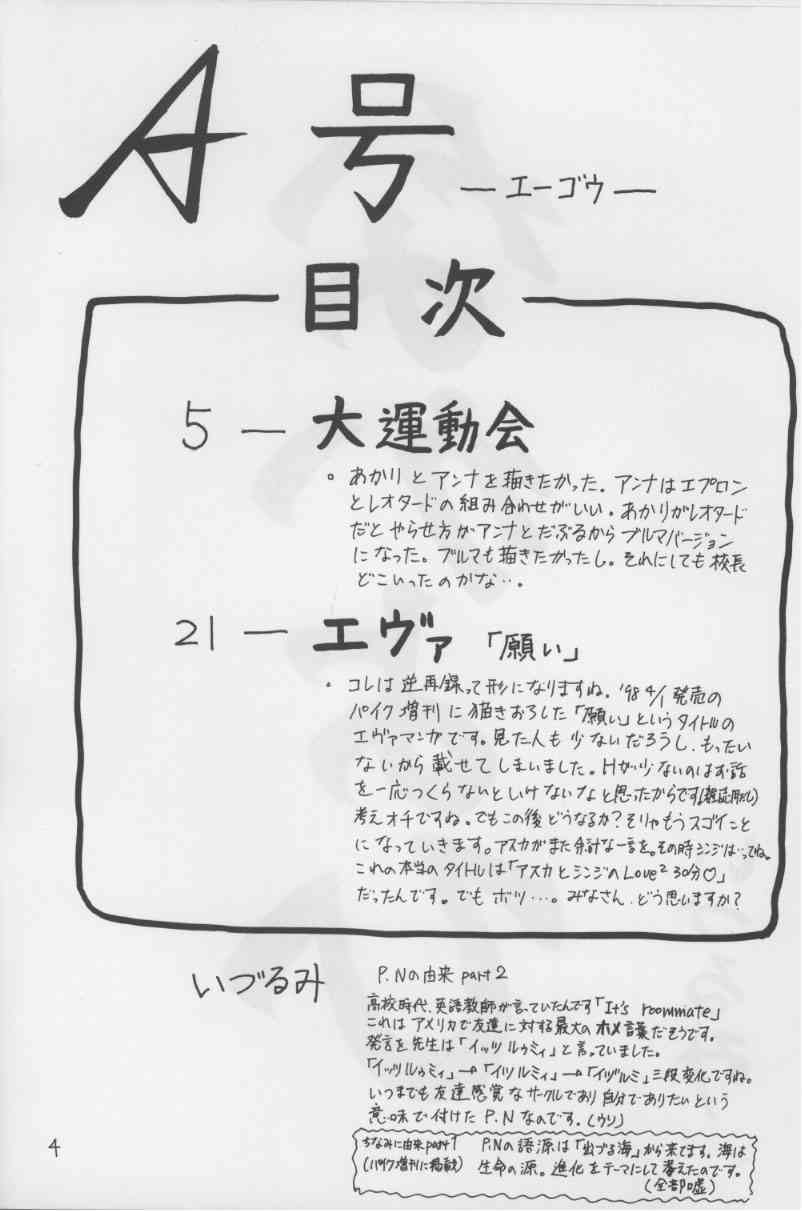 A号 ―エーゴウ―
目次
5 ― 大運動会
。あかりとアンナを描きたかった。アンナはエプロン
とレオタードの組み合わせがいい。あかりがレオタード
だとやらせ方がアンナとだぶるからブルマバージョン
になった。ブルマも描きたかったし。それにしても校長
どこいったのかな…。
21 ― エヴァ 「願い」
。コレは逆再録って形になりますね。'98 4/1 発売の
パイク増刊に描きおろした「願い」というタイトルの
エヴァマンガです。見た人も少ないだろうし、もったい
ないから載せてしまいました。Hが少ないのはお話
を一応つくらないといけないなと思ったからです
考えオチですね。でもこの後どうなるか?そりゃもうスゴイこと
になっていきます。アスカがまた余計な一言を。その時シンジは…ってね。
これの本当のタイトルは「アスカとシンジのLove² 30分♡」
だったんです。でもボツ…。みなさん、どう思いますか?
いづるみ
P.Nの由来 part2
高校時代、英語教師が言っていたんです「It's roommate」
これはアメリカで友達に対する最大のホメ言葉だそうです。
発言を先生は「イッツルゥミィ」と言っていました。
「イッツルゥミィ」→「イツルミィ」→「イヅルミ」三段変化ですね。
いつまでも友達感覚なサークルであり自分でありたいという
意味で付けたP.Nなのです。(ウソ)
ちなみに由来part1
(パイク増刊に掲載)
P.Nの語源は「出づる海」から来てます。海は
生命の源。進化をテーマにして考えたのです。
(全部嘘)
4